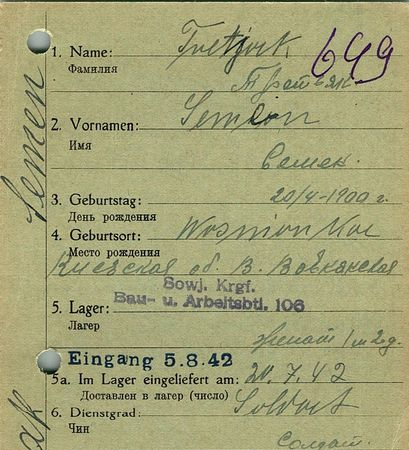 649
1. Name: Tretjack
Фамилия
Третьяк
2. Vornamen: Semion
Имя
Семен.
3. Geburtstag: 20/4-1900 г.
День рождения
4. Geburtsort:
Место рождения
Киевская об. В.
Sowj. Krgf.
Bau- u. Arbeitsbtl. 106
5. Lager:
Лагерь
женат
Eingang 5.8.42
5a. Im Lager eingeliefert am: 20.7.42
Доставлен в лагерь (число)
6. Dienstgrad: Soldat
Чин
Солдат.
Semen